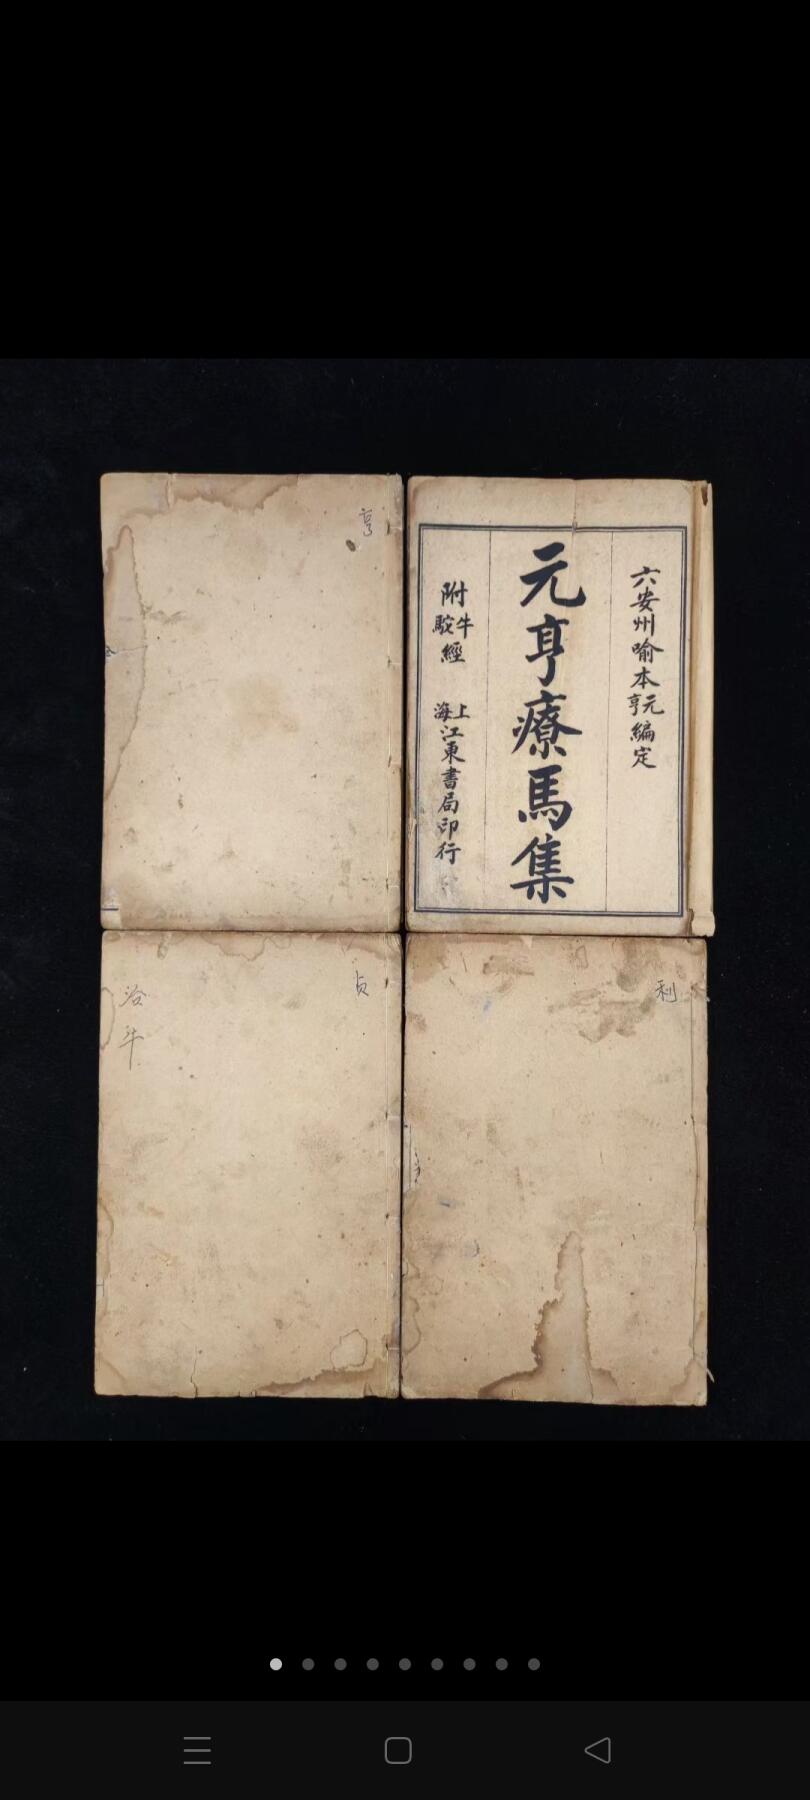 六安州喻本元亨編定
元亨療馬集
附牛駝經
上海江東書局印行
亨
利
贞
治牛